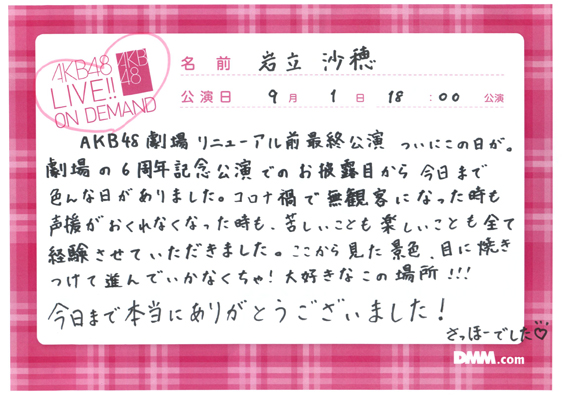 AKB48
LIVE!!
ON DEMAND
AKB
48
名前 岩立 沙穂
公演日 9月 1日 18:00 公演
AKB48劇場リニューアル前最終公演 ついにこの日が。
劇場の6周年記念公演でのお披露目から今日まで
色んな日がありました。コロナ禍で無観客になった時も
声援がおくれなくなった時も、苦しいことも楽しいことも全て
経験させていただきました。ここから見た景色、目に焼き
つけて並んでいかなくちゃ!大好きなこの場所!!!
今日まで本当にありがとうございました!
さっほーでした♡
DMM.com